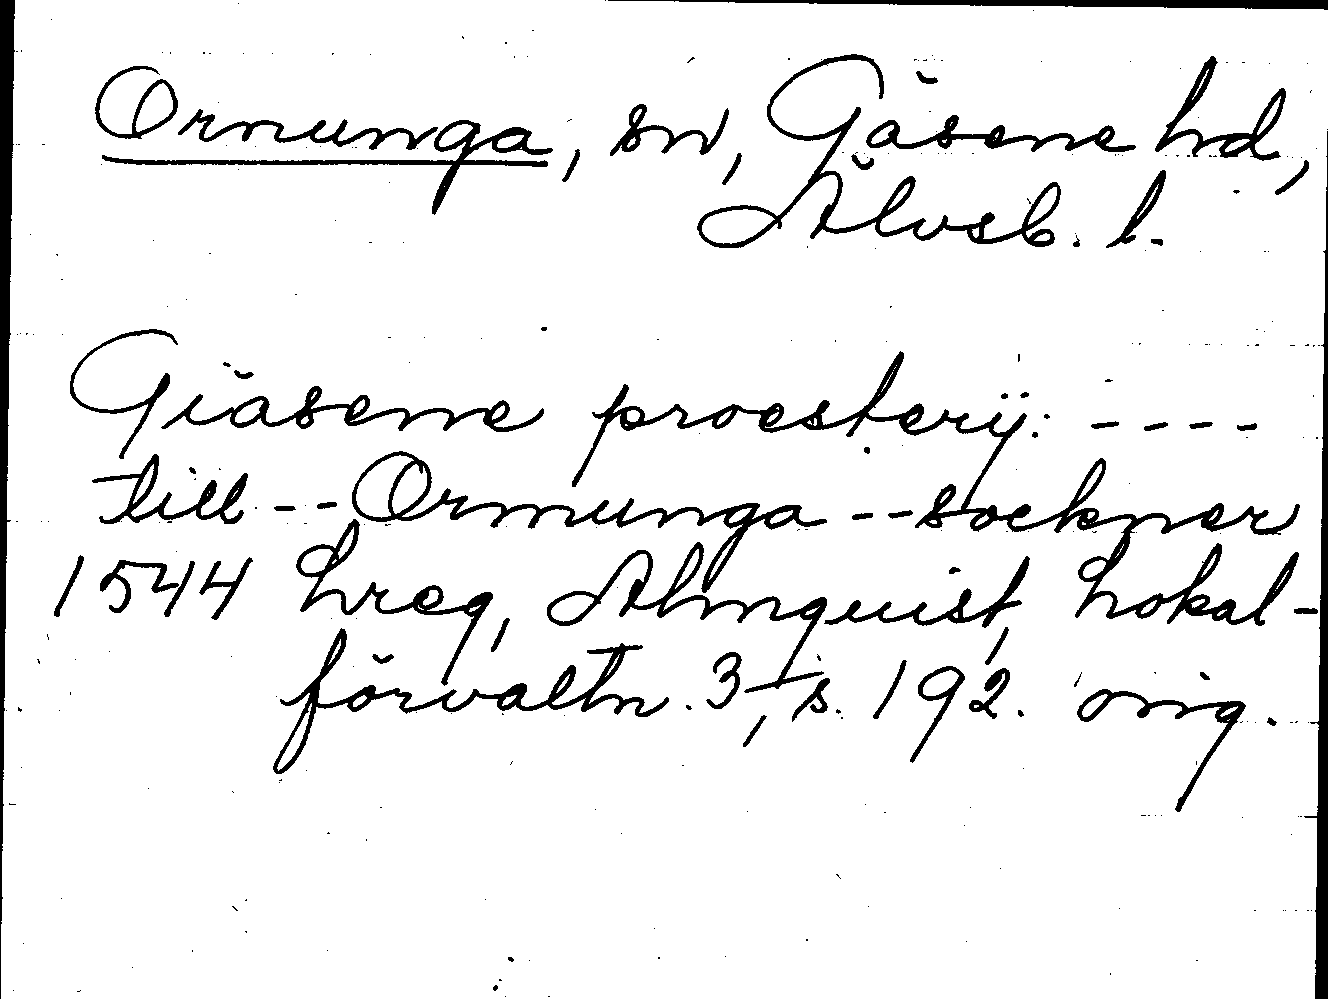 Ornunga, sn, Gäsene hd,
Älvsb. l.
Giäsene proesterij: ----
till -- Ormunga -- sockner
1544 hreg, Almquist, Lokal-
förvaltn. 3, s. 192. orig.